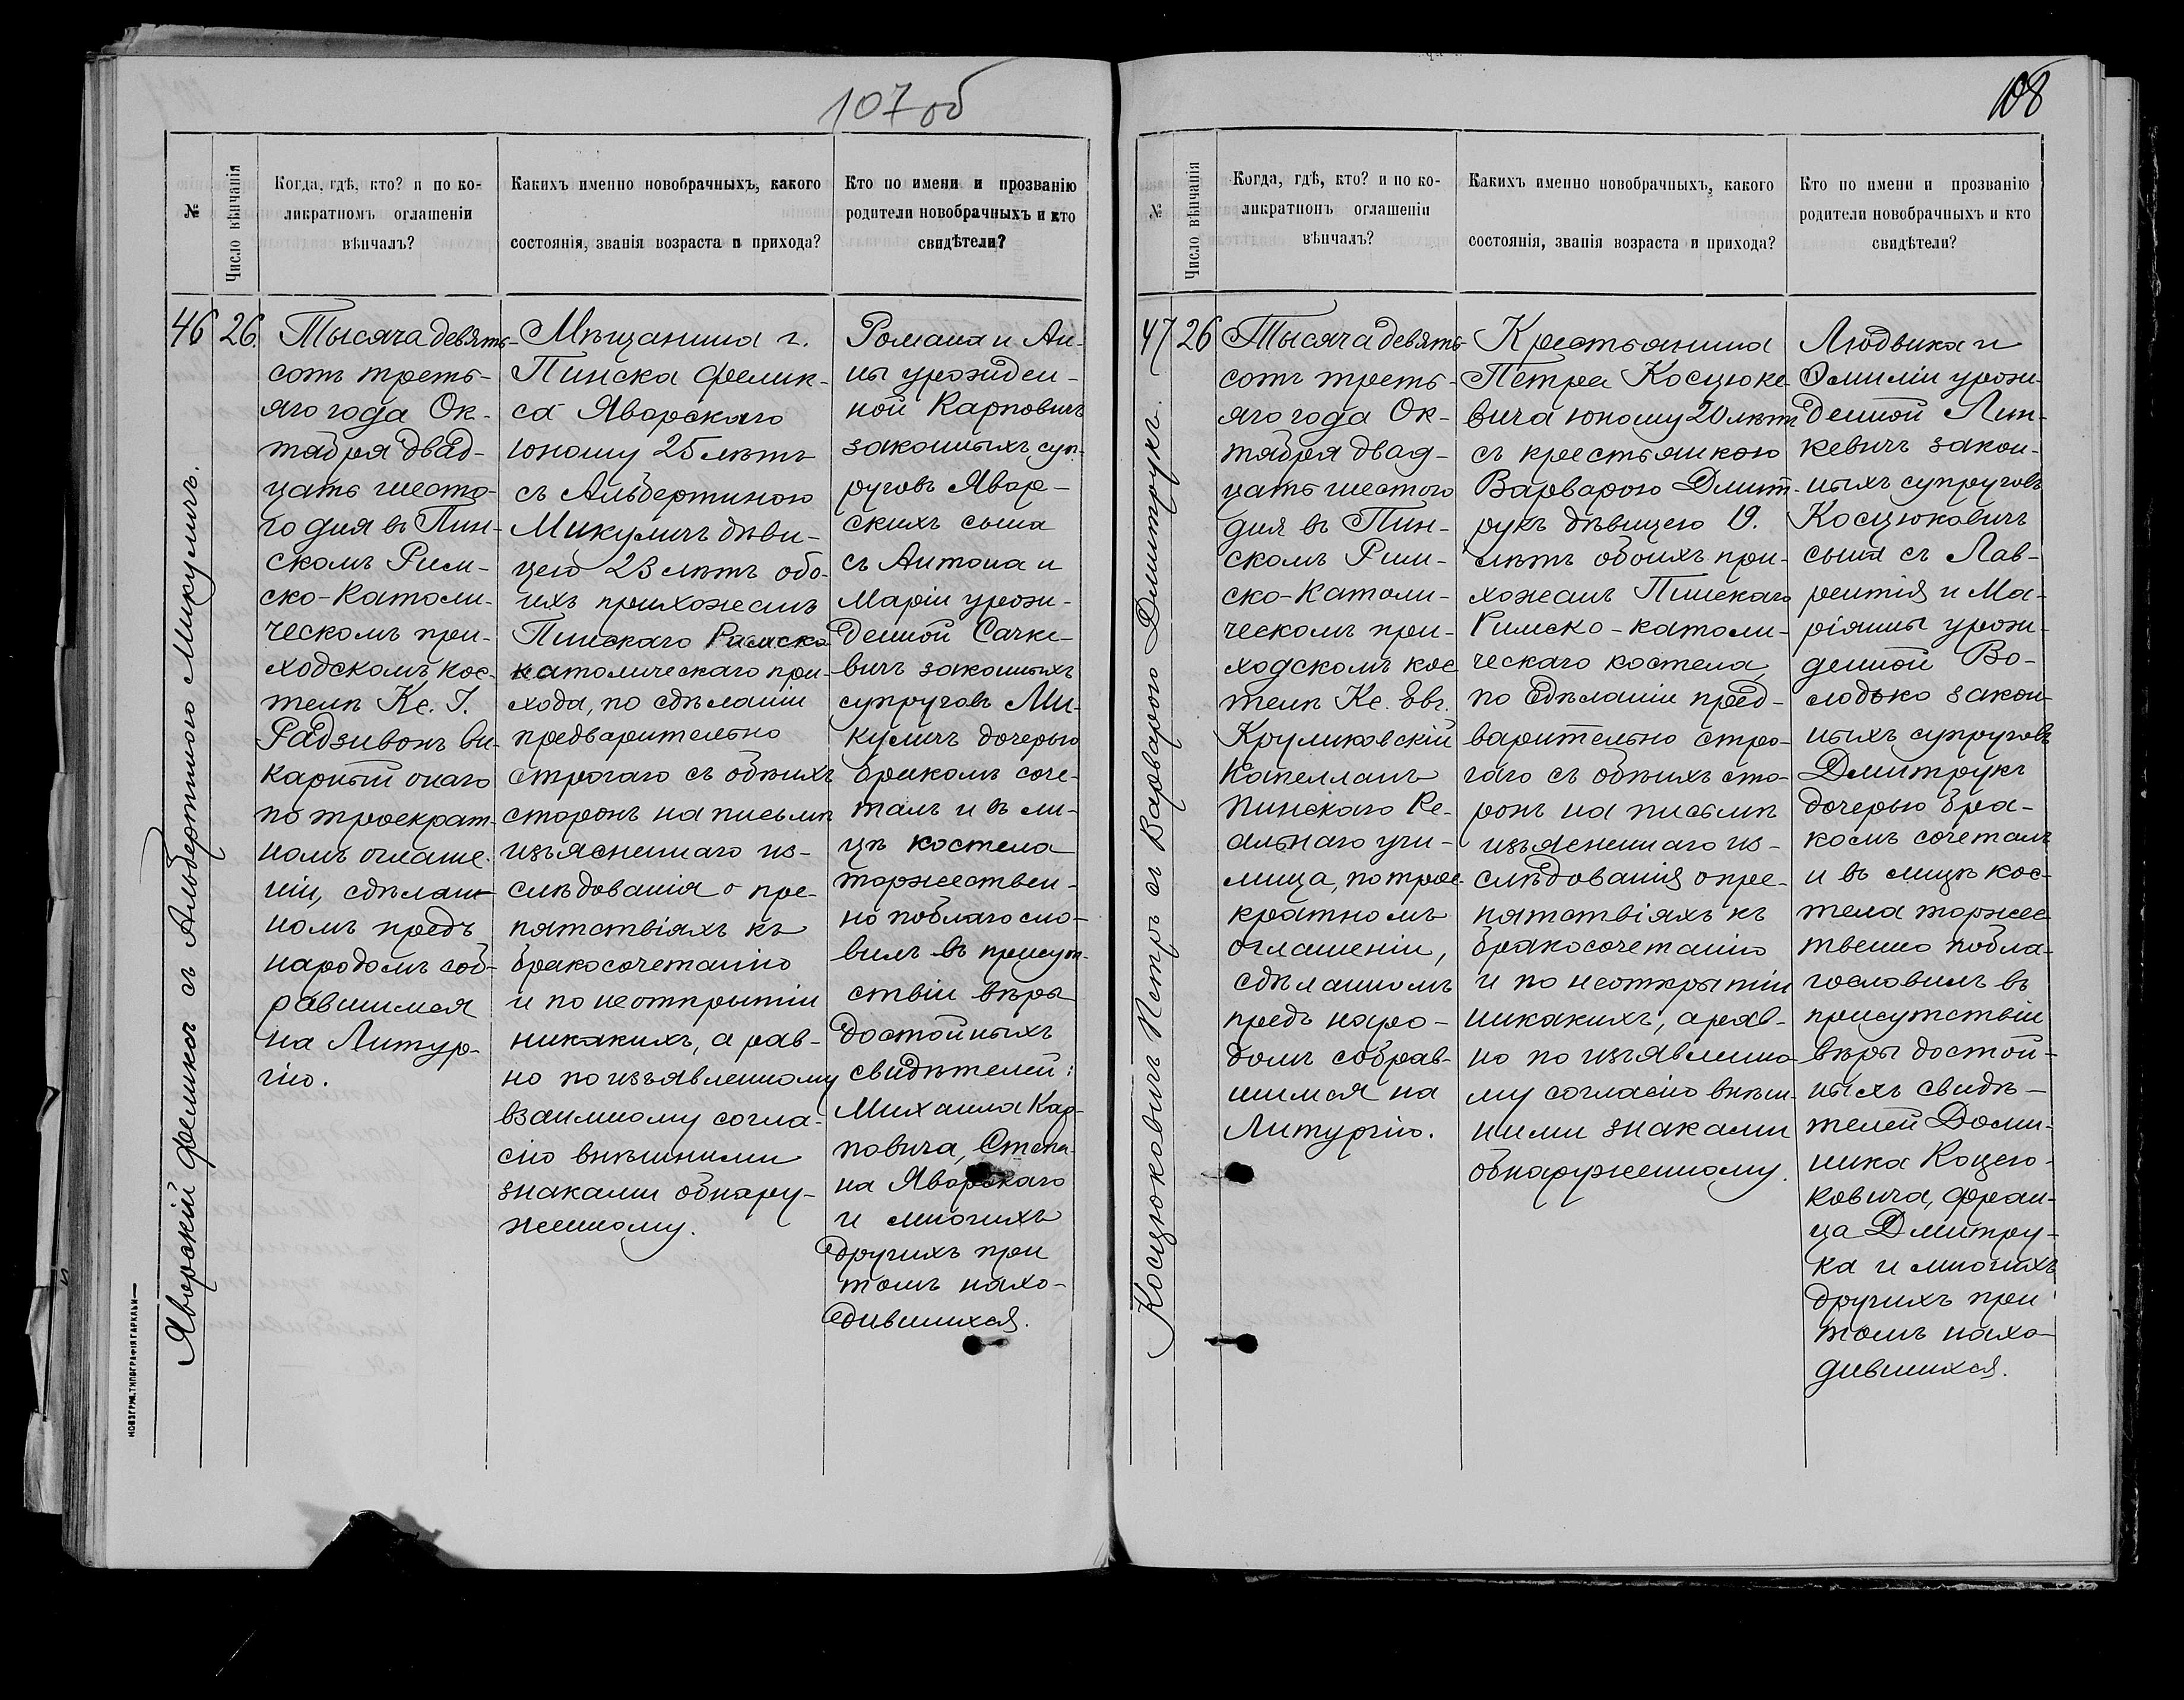 107 об
№
Число вѣнчанія
Когда, гдѣ, кто? и по ко-
ликратномъ оглашеніи
вѣнчалъ?
Какихъ именно новобрачныхъ, какого
состоянія, званія возраста и прихода?
Кто по имени и прозванію
родители новобрачныхъ и кто
свидѣтели?
Яворскій Феликсъ съ Альбертиною Микуличъ.
46
26.
Тысяча девять-
сотъ треть-
яго года Ок-
тября двад-
цать шесто-
го дня въ Пин-
скомъ Рим-
ско-Католи-
ческомъ при-
ходскомъ кос-
телѣ Кс. І.
Радзивонъ ви-
карный онаго
по троекрат-
номъ оглаше-
ніи, сдѣлан-
номъ предъ
народомъ соб-
равшимся
на Литур-
гію.
Мѣщанина г.
Пинска Фелик-
са Яворскаго
юношу 25 лѣтъ
съ Альбертиною
Микуличъ дѣви-
цею 23 лѣтъ обо-
ихъ прихожанъ
Пинскаго Римско
католическаго при-
хода, по сдѣланіи
предварительно
строгаго съ обѣихъ
сторонъ на письмѣ
изъясненнаго из-
слѣдованія о пре-
пятствіяхъ къ
бракосочетанію
и по неоткрытіи
никакихъ, а рав-
но по изъявленному
взаимному согла-
сію внѣшними
знаками обнару-
женному.
Романа и Ан-
ны урожден-
ной Карповичъ
законныхъ суп-
руговъ Явор-
скихъ сына
съ Антона и
Маріи урож-
денной Сачко-
вичъ законныхъ
супруговъ Ми-
куличъ дочерью
бракомъ соче-
талъ и въ ли-
цѣ костела
торжествен-
но поблагосло-
вилъ въ присут-
ствіи вѣры
достойныхъ
свидѣтелей:
Михаила Кар-
повича, Степа-
на Яворскаго
и многихъ
другихъ при
томъ нахо-
дившихся.
НОВОГРУД. ТИПОГРАФІЯ ГАРКАВИ
108
№
Число вѣнчанія
Когда, гдѣ, кто? и по ко-
ликратномъ оглашеніи
вѣнчалъ?
Какихъ именно новобрачныхъ, какого
состоянія, званія возраста и прихода?
Кто по имени и прозванію
родители новобрачныхъ и кто
свидѣтели?
Косцюковичъ Петръ съ Варварою Дмитрукъ.
47
26
Тысяча девять
сотъ треть-
яго года Ок-
тября двад-
цать шестого
дня въ Пин-
скомъ Рим-
ско-Католи-
ческомъ при-
ходскомъ кос
телѣ Кс. Евг.
Круликовскій
Капелланъ
Пинскаго Ре-
альнаго учи-
лища, по трое-
кратномъ
оглашеніи,
сдѣланномъ
предъ наро-
домъ собрав-
шимся на
Литургію.
Крестьянина
Петра Косцюко-
вича юношу 20 лѣтъ
съ крестьянкою
Варварою Дмит-
рукъ дѣвицею 19.
лѣтъ обоихъ при-
хожанъ Пинскаго
Римско-католи-
ческаго костела,
по сдѣланіи пред-
варительно стро-
гаго съ обѣихъ сто-
ронъ на письмѣ
изъясненнаго из-
слѣдованія о пре-
пятствіяхъ къ
бракосочетанію
и по неоткрытіи
никакихъ, а рав-
но по изъявленно-
му согласію внѣш-
ними знаками
обнаруженному.
Людвика и
Эмиліи урож-
денной Лин-
кевичъ закон-
ныхъ супруговъ
Косцюковичъ
сына съ Лав-
рентія и Ма-
ріянны урож-
денной Во-
лодько закон-
ныхъ супруговъ
Дмитрукъ
дочерью бра-
комъ сочеталъ
и въ лицѣ кос-
тела торжес-
твенно побла-
гословилъ въ
присутствіи
вѣры достой-
ныхъ свидѣ-
телей Доми-
ника Коцею-
ковича, Фран-
ца Дмитру-
ка и многихъ
другихъ при
томъ нахо-
дившихся.